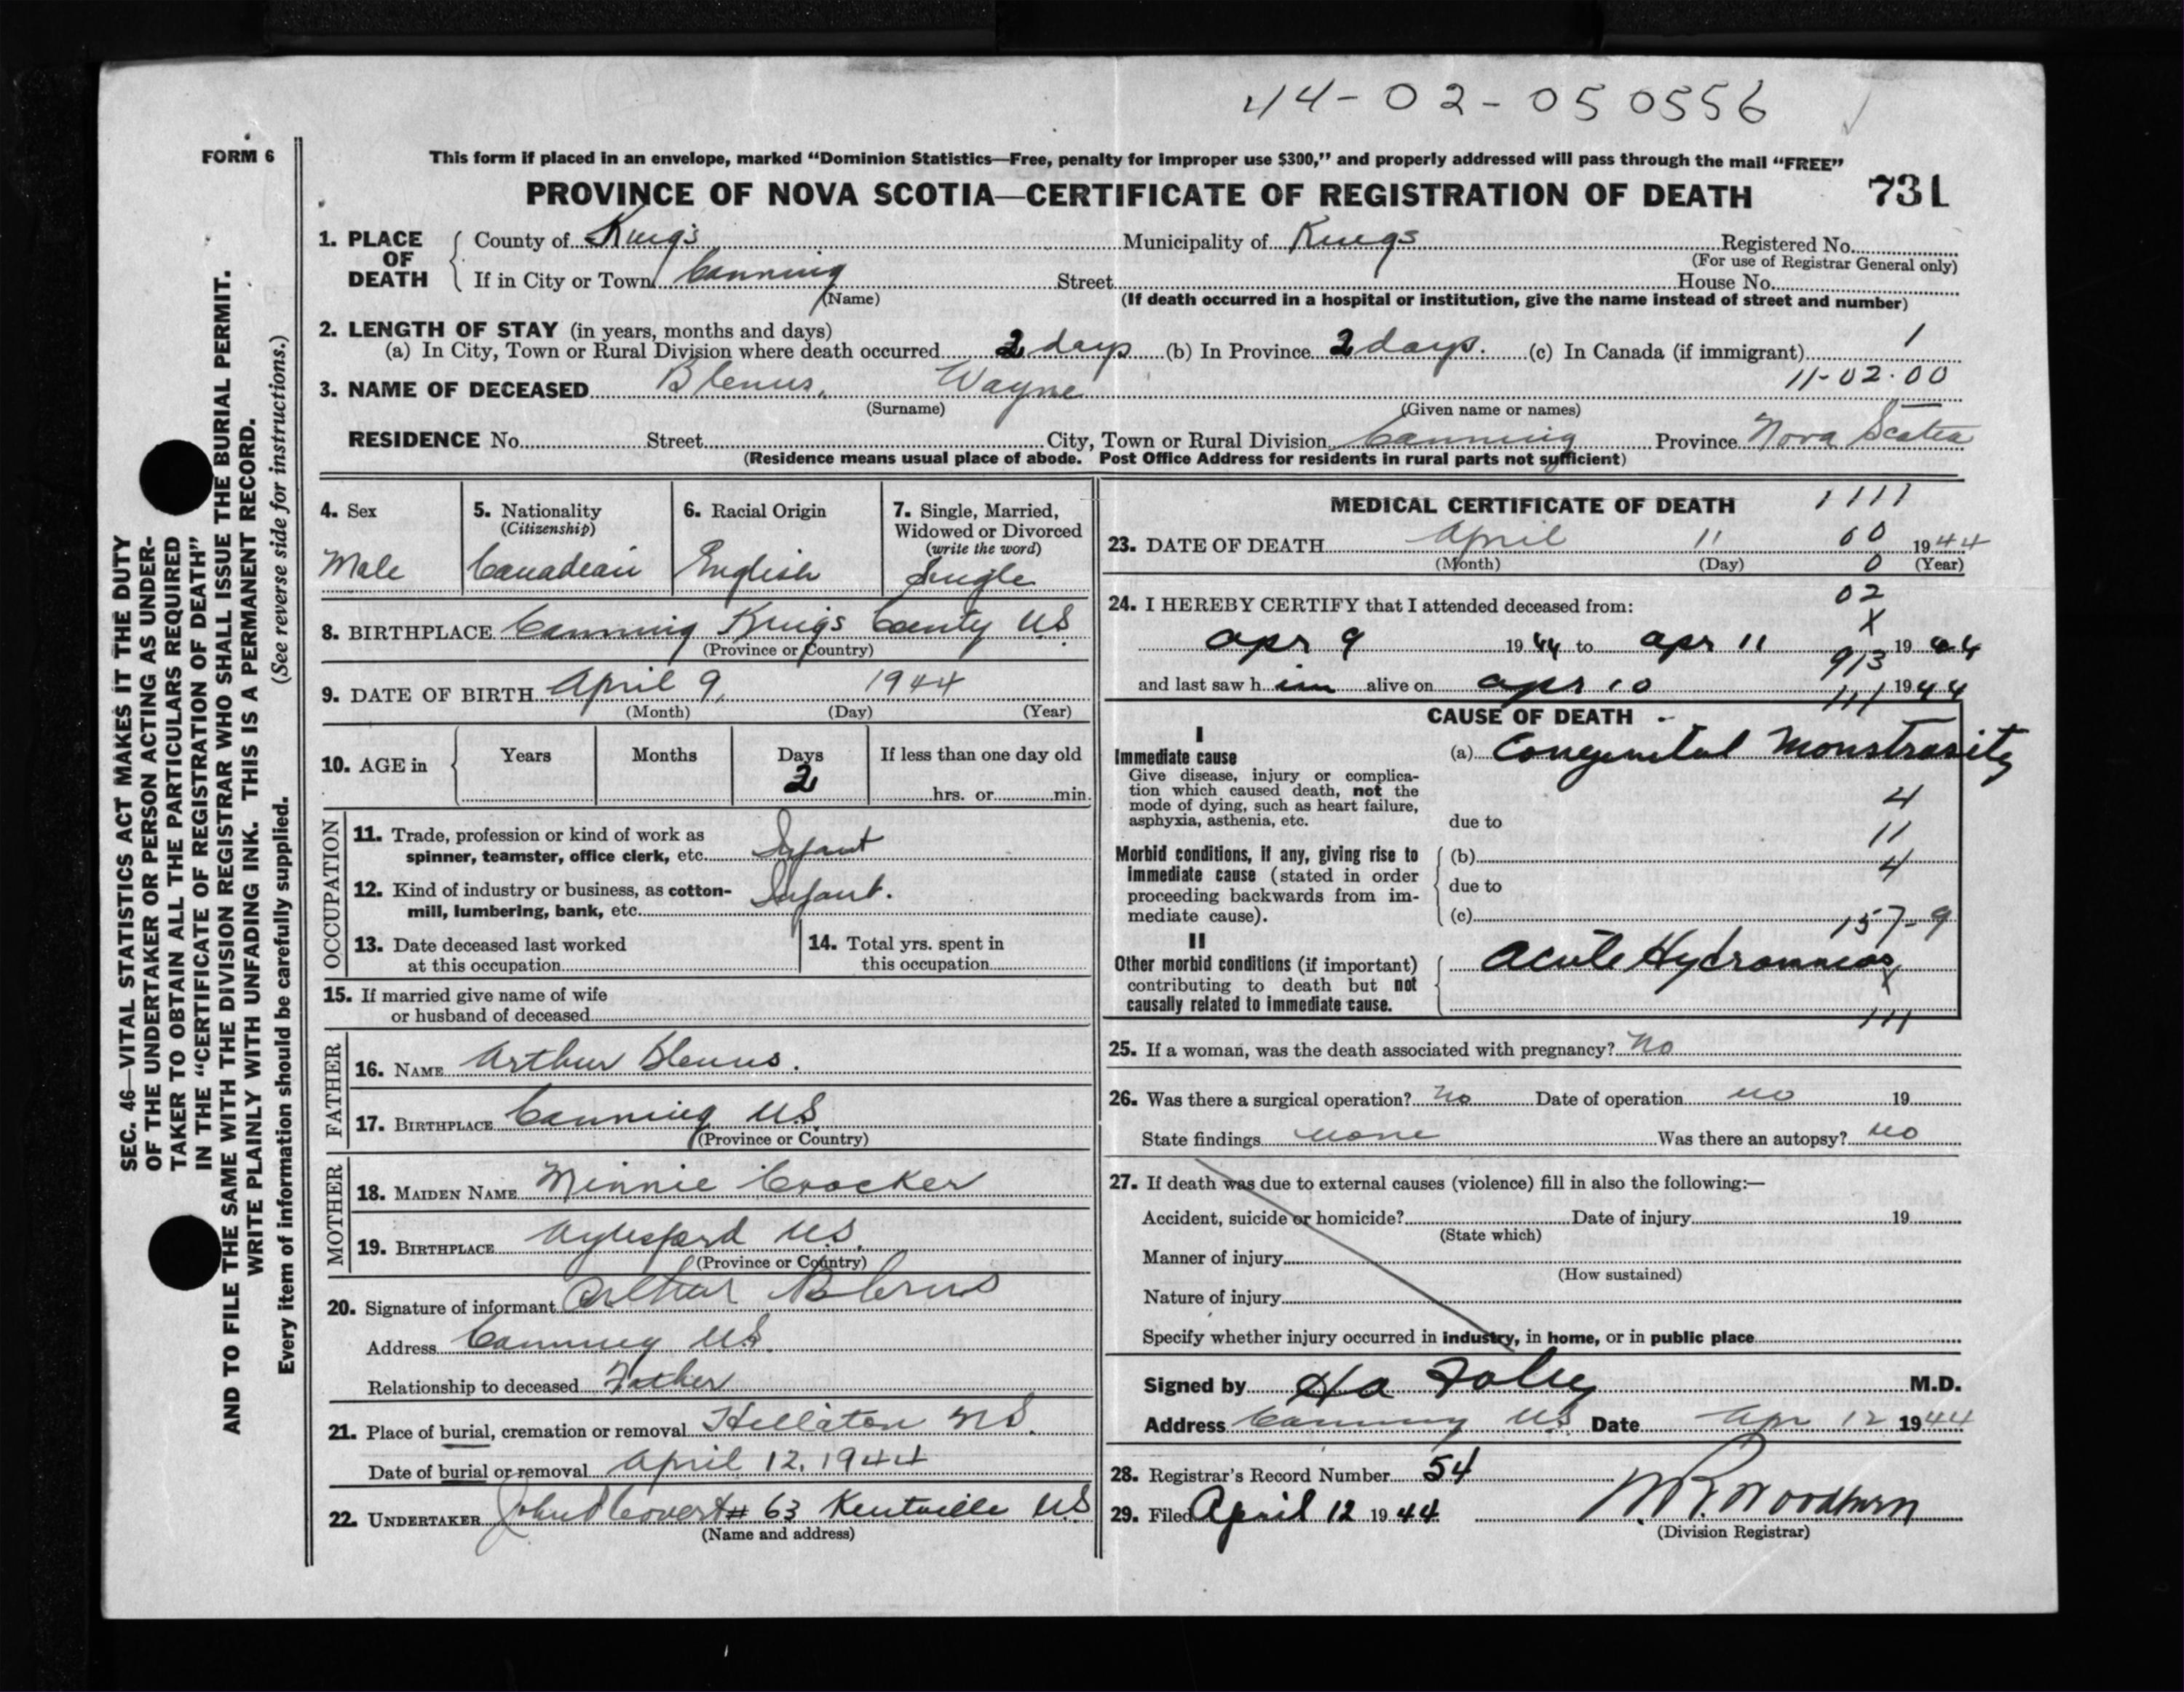 44-02-050556
FORM 6
This form if placed in an envelope, marked “Dominion Statistics—Free, penalty for improper use $300,” and properly addressed will pass through the mail “FREE”
PROVINCE OF NOVA SCOTIA—CERTIFICATE OF REGISTRATION OF DEATH 731
1. PLACE OF DEATH County of Kings Municipality of Kings Registered No.
(For use of Registrar General only)
If in City or Town Canning Street House No.
(Name) (If death occurred in a hospital or institution, give the name instead of street and number)
2. LENGTH OF STAY (in years, months and days)
(a) In City, Town or Rural Division where death occurred 2 days (b) In Province 2 days. (c) In Canada (if immigrant) 1
11-02-00
3. NAME OF DECEASED Blenus, Wayne
(Surname) (Given name or names)
RESIDENCE No. Street City, Town or Rural Division Canning Province Nova Scotia
(Residence means usual place of abode. Post Office Address for residents in rural parts not sufficient)
4. Sex Male
5. Nationality (Citizenship) Canadian
6. Racial Origin English
7. Single, Married, Widowed or Divorced (write the word) Single
8. BIRTHPLACE Canning Kings County NS
(Province or Country)
9. DATE OF BIRTH April 9, 1944
(Month) (Day) (Year)
10. AGE in Years Months Days 2 If less than one day old
hrs. or min.
OCCUPATION
11. Trade, profession or kind of work as
spinner, teamster, office clerk, etc. Infant
12. Kind of industry or business, as cotton-
mill, lumbering, bank, etc. Infant.
13. Date deceased last worked
at this occupation
14. Total yrs. spent in
this occupation
15. If married give name of wife
or husband of deceased
FATHER
16. NAME Arthur Blenus.
17. BIRTHPLACE Canning NS
(Province or Country)
MOTHER
18. MAIDEN NAME Minnie Crocker
19. BIRTHPLACE Aylesford NS.
(Province or Country)
20. Signature of informant Arthur Blenus
Address Canning NS.
Relationship to deceased Father
21. Place of burial, cremation or removal Hillaton NS.
Date of burial or removal April 12, 1944
22. UNDERTAKER John Covert # 63 Kentville NS
(Name and address)
MEDICAL CERTIFICATE OF DEATH 1111
23. DATE OF DEATH April 11 60 1944
(Month) (Day) 0 (Year)
24. I HEREBY CERTIFY that I attended deceased from: 02
X
apr 9 1944 to apr 11 1944
913
and last saw him alive on apr 10 1944
111
CAUSE OF DEATH
I
Immediate cause (a) Congenital Monstrosity
Give disease, injury or complica-
tion which caused death, not the
mode of dying, such as heart failure,
asphyxia, asthenia, etc. due to
4
11
Morbid conditions, if any, giving rise to (b)
4
immediate cause (stated in order due to
proceeding backwards from im-
mediate cause). (c) 157-9
II
Other morbid conditions (if important) Acute Hydramnios
contributing to death but not X
causally related to immediate cause.
111
25. If a woman, was the death associated with pregnancy? No
26. Was there a surgical operation? No Date of operation no 19
State findings none Was there an autopsy? no
27. If death was due to external causes (violence) fill in also the following:—
Accident, suicide or homicide? Date of injury 19
(State which)
Manner of injury
(How sustained)
Nature of injury
Specify whether injury occurred in industry, in home, or in public place
Signed by M.D.
Address Canning NS Date Apr 12 1944
28. Registrar's Record Number 54
29. Filed April 12 1944 Woodburn
(Division Registrar)
SEC. 46—VITAL STATISTICS ACT MAKES IT THE DUTY
OF THE UNDERTAKER OR PERSON ACTING AS UNDER-
TAKER TO OBTAIN ALL THE PARTICULARS REQUIRED
IN THE “CERTIFICATE OF REGISTRATION OF DEATH”
AND TO FILE THE SAME WITH THE DIVISION REGISTRAR WHO SHALL ISSUE THE BURIAL PERMIT.
WRITE PLAINLY WITH UNFADING INK. THIS IS A PERMANENT RECORD.
Every item of information should be carefully supplied. (See reverse side for instructions.)